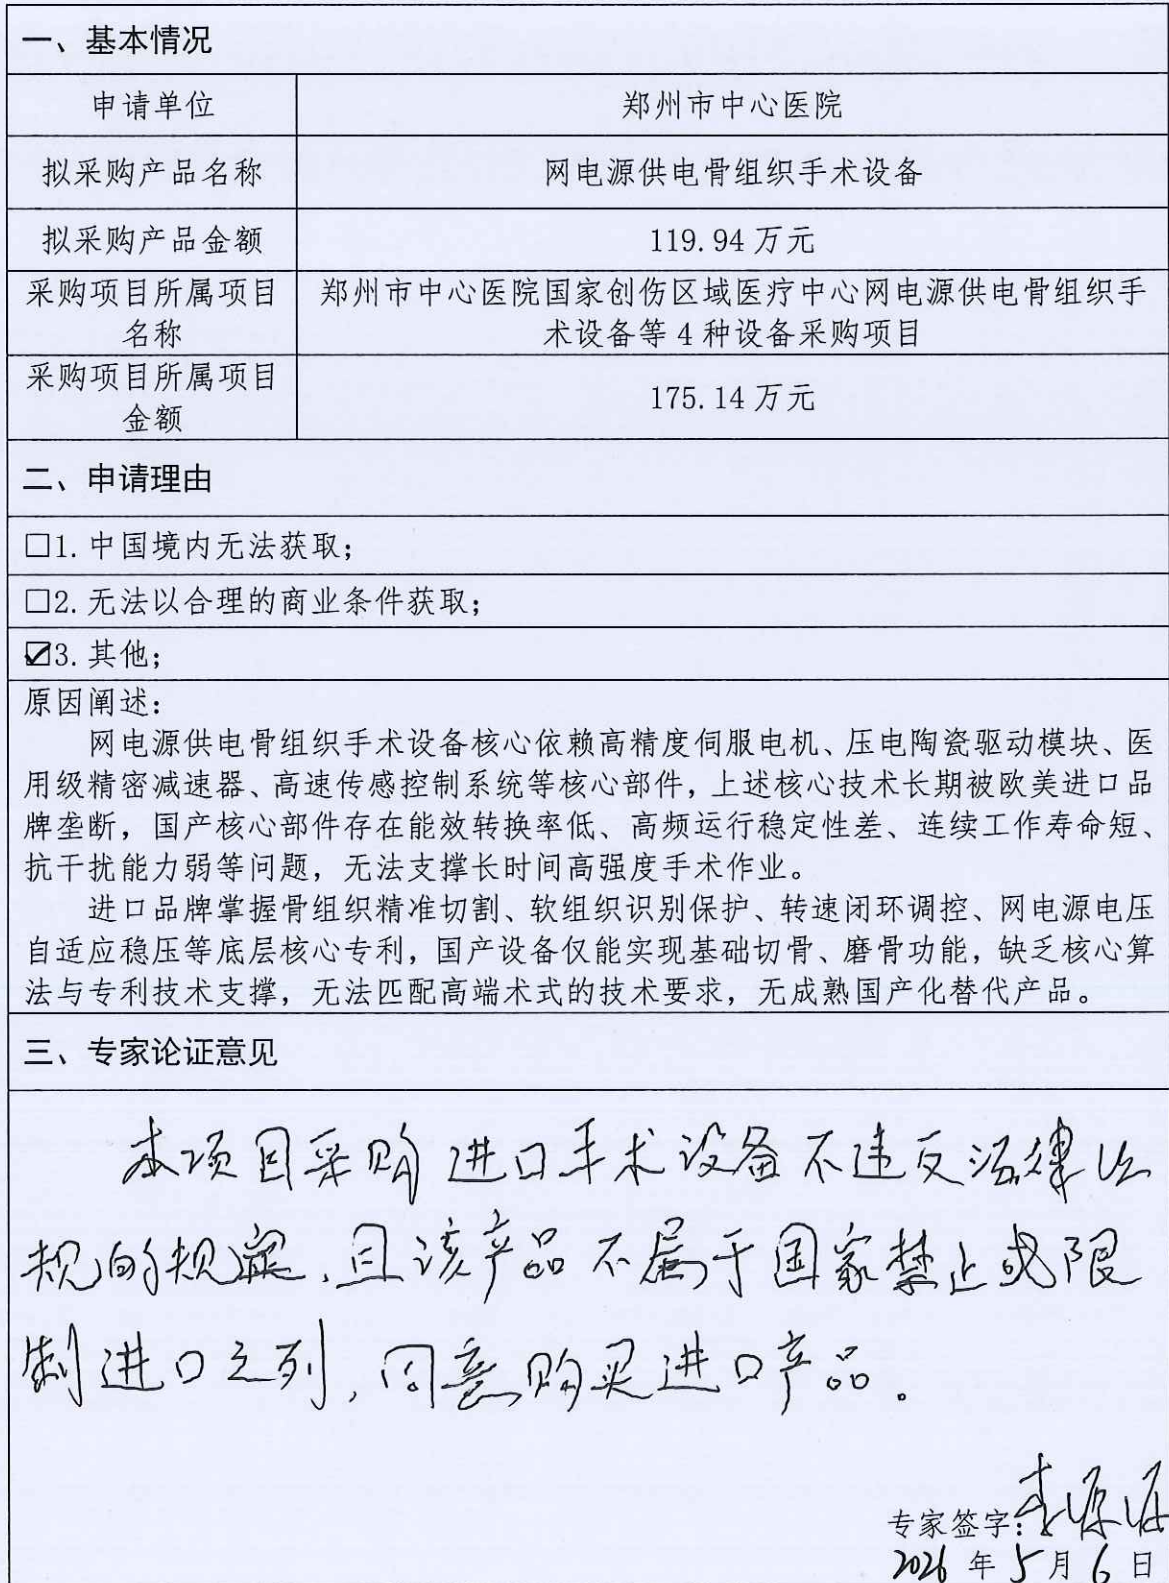 一、基本情况
申请单位 郑州市中心医院
拟采购产品名称 网电源供电骨组织手术设备
拟采购产品金额 119.94万元
采购项目所属项目
名称
郑州市中心医院国家创伤区域医疗中心网电源供电骨组织手
术设备等4种设备采购项目
采购项目所属项目
金额
175.14万元
二、申请理由
☐1.中国境内无法获取；
☐2.无法以合理的商业条件获取；
☑3.其他；
原因阐述：
网电源供电骨组织手术设备核心依赖高精度伺服电机、压电陶瓷驱动模块、医
用级精密减速器、高速传感控制系统等核心部件，上述核心技术长期被欧美进口品
牌垄断，国产核心部件存在能效转换率低、高频运行稳定性差、连续工作寿命短、
抗干扰能力弱等问题，无法支撑长时间高强度手术作业。
进口品牌掌握骨组织精准切割、软组织识别保护、转速闭环调控、网电源电压
自适应稳压等底层核心专利，国产设备仅能实现基础切骨、磨骨功能，缺乏核心算
法与专利技术支撑，无法匹配高端术式的技术要求，无成熟国产化替代产品。
三、专家论证意见
本项目采购进口手术设备不违反法律法
规的规定，且该产品不属于国家禁止或限
制进口之列，同意购买进口产品。
专家签字：
2026年5月6日